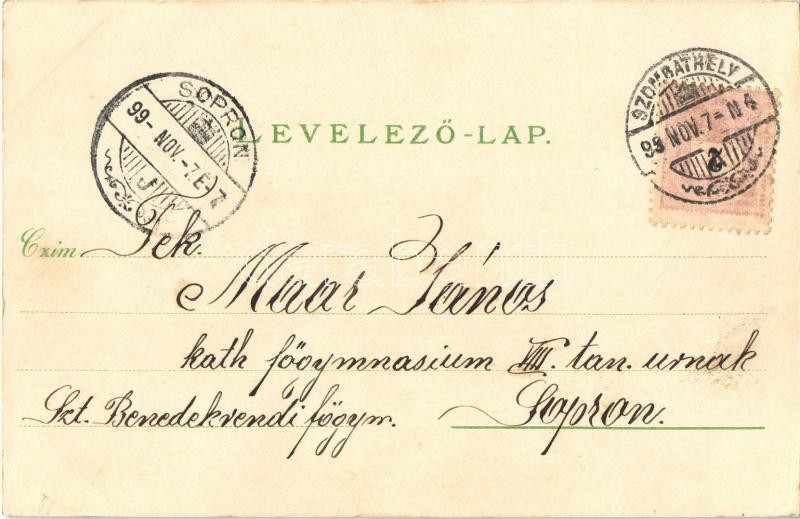 LEVELEZŐ-LAP.
SOPRON
99-NOV.-7.E-7
SZOMBATHELY
99 NOV.7-N 4
Czim Tek.
Maar János
kath főgymnasium VIII. tan. urnak
Szt. Benedekrendi főgym. Sopron.